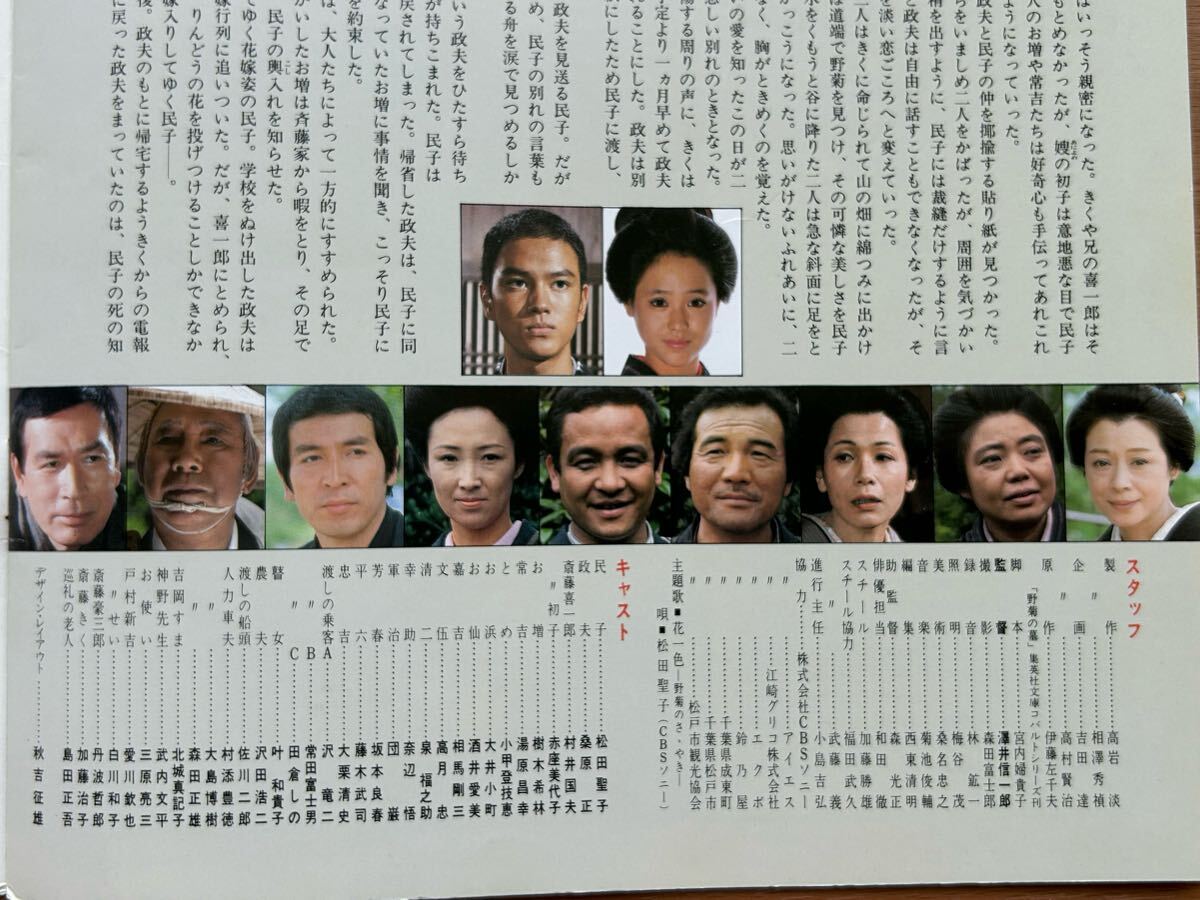 はいっそう親密になった。きくや兄の喜一郎はそ
もとめなかったが、嫂の初子は意地悪な目で民子
人のお増や常吉たちは好奇心も手伝ってあれこれ
ようになっていった。
政夫と民子の仲を揶揄する貼り紙が見つかった。
らをいましめ二人をかばったが、周囲を気づかい
精を出すように、民子には裁縫だけするように言
と政夫は自由に話すこともできなくなったが、そ
を淡い恋ごころへと変えていった。
二人はきくに命じられて山の畑に綿つみに出かけ
は道端で野菊を見つけ、その可憐な美しさを民子
水をくもうと谷に降りた二人は急な斜面に足をと
かっこうになった。思いがけないふれあいに、二
なく、胸がときめくのを覚えた。
いの愛を知ったこの日が二
悲しい別れのときとなった。
傷する周りの声に、きくは
予定より一ヵ月早めて政夫
れることにした。政夫は別
訳にしたため民子に渡し、
政夫を見送る民子。だが
め、民子の別れの言葉も
る舟を涙で見つめるしか
いう政夫をひたすら待ち
が持ちこまれた。民子は
戻されてしまった。帰省した政夫は、民子に同
なっていたお増に事情を聞き、こっそり民子に
を約束した。
は、大人たちによって一方的にすすめられた。
かいしたお増は斉藤家から暇をとり、その足で
民子の輿入れを知らせた。
てゆく花嫁姿の民子。学校をぬけ出した政夫は
嫁行列に追いついた。だが、喜一郎にとめられ、
りんどうの花を投げつけることしかできなか
嫁入りしてゆく民子――。
後。政夫のもとに帰宅するようきくからの電報
に戻った政夫をまっていたのは、民子の死の知
スタッフ
製作…………高岩 淡
〃…………相澤秀禎
企画…………吉田 達
〃…………高村賢治
原作…………伊藤左千夫
「野菊の墓」集英社文庫コバルトシリーズ刊
脚本…………宮内婦貴子
監督…………澤井信一郎
撮影…………森田富士郎
録音…………林 鉱一
照明…………梅谷 茂
美術…………桑名忠之
音楽…………菊池俊輔
編集…………西東清明
助監督…………森 光正
俳優担当…………和田 徹
スチール…………加藤勝雄
スチール協力…………福田武久
〃…………武藤 義
進行主任…………小島吉弘
協力…………株式会社CBSソニー
〃…………アイエス
〃…………エクボ
〃…………江崎グリコ株式会社
〃…………鈴乃屋
〃…………千葉県成東町
〃…………千葉県松戸市
〃…………松戸市観光協会
主題歌■花一色―野菊のささやき―
唄■松田聖子(CBSソニー)
キャスト
民子…………松田聖子
政夫…………桑原 正
斎藤喜一郎…………村井国夫
〃初子…………赤座美代子
お増…………樹木希林
常吉…………湯原昌幸
とめ…………小甲登枝恵
お浜…………大井小町
お仙…………酒井愛美
嘉吉…………相馬剛三
文伍…………高月 忠
清二…………泉 福之助
幸助…………奈辺 悟
軍治…………団 巌
芳春…………坂本良春
平六…………藤木武司
忠吉…………大栗清史
渡しの乗客A…………沢 竜二
〃 B…………常田富士男
〃 C…………田倉しの
瞽女…………叶 和貴子
農夫…………沢田浩二
渡しの船頭…………佐川二郎
人力車夫…………村添豊徳
〃…………大島博樹
〃…………森田正雄
吉岡すま…………北城真記子
神野先生…………武内文平
お使い…………三原亮三
戸村新吉…………愛川欽也
〃せい…………白川和子
斎藤豪三郎…………丹波哲郎
斎藤きく…………加藤治子
巡礼の老人…………島田正吾
デザイン・レイアウト…………秋吉征雄